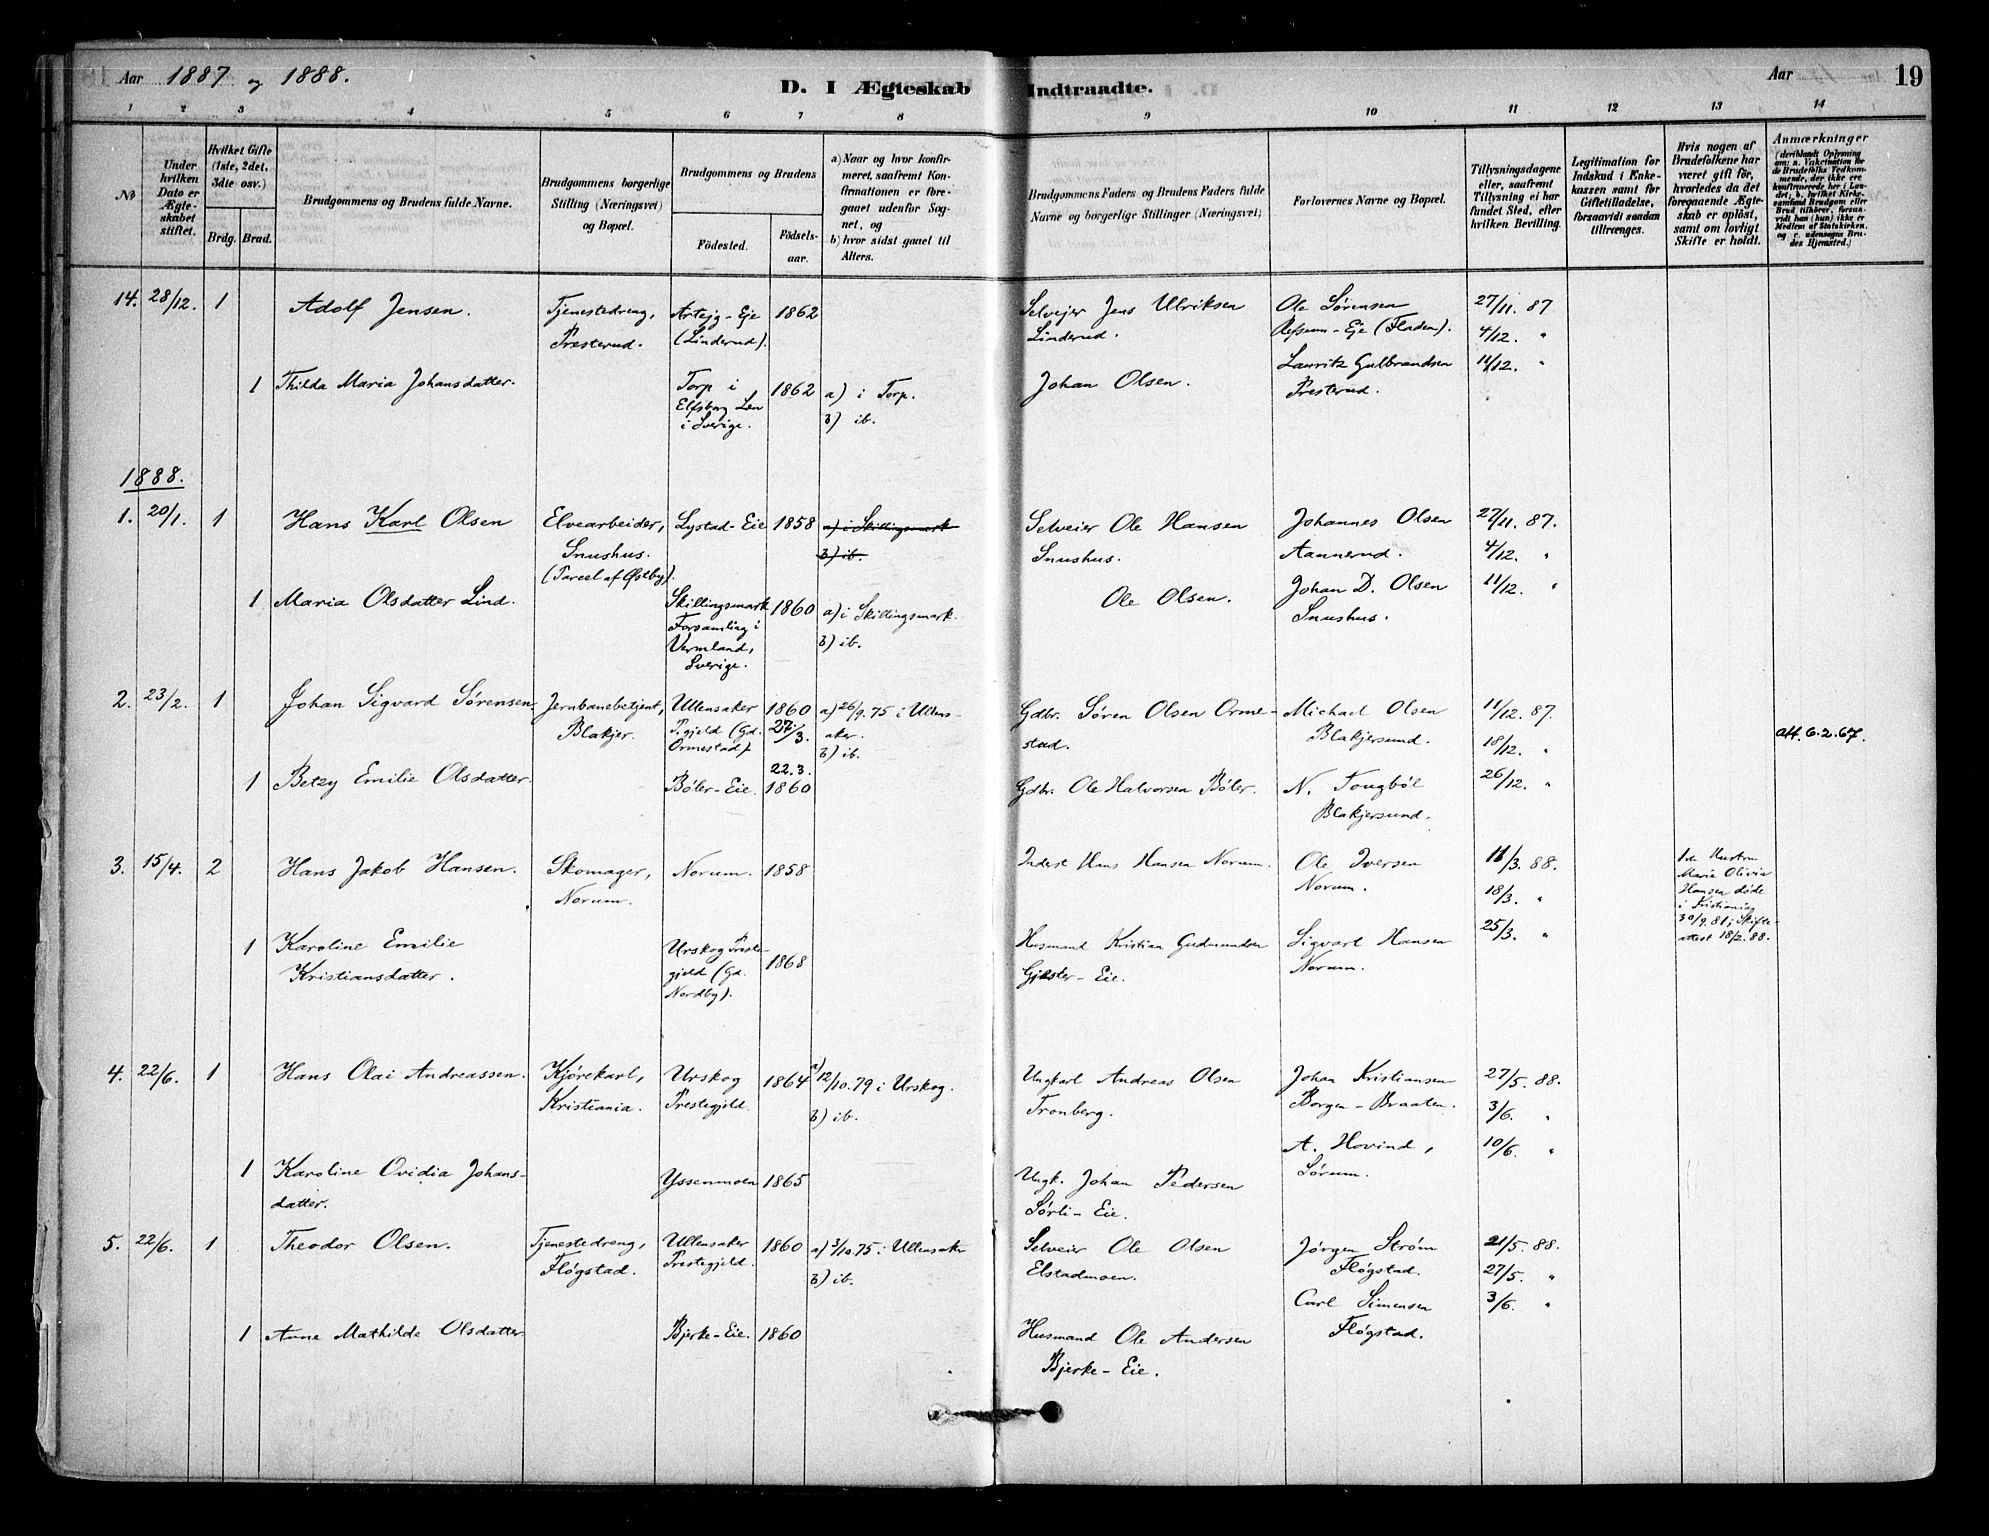 Aar 1887 og 1888.
D. I Ægteskab Indtraadte.
Aar
19
1 2 3 4 5 6 7 8 9 10 11 12 13 14
No
Under hvilken Dato er Ægteskabet stiftet.
Hvilket Gifte (1ste, 2det, 3die osv.)
Brdg. Brud.
Brudgommens og Brudens fulde Navne.
Brudgommens borgerlige Stilling (Næringsvei) og Bopæl.
Brudgommens og Brudens
Födested.
Födselsaar.
a) Naar og hvor konfirmeret, saafremt Konfirmationen er foregaaet udenfor Sognet, og
b) hvor sidst gaaet til Alters.
Brudgommens Faders og Brudens Faders fulde Navne og borgerlige Stillinger (Næringsvei)
Forlovernes Navne og Bopæl.
Tillysningsdagene eller, saafremt Tillysning ei har fundet Sted, efter hvilken Bevilling.
Legitimation for Indskud i Enkekassen samt for Giftetilladelse, forsaavidt saadan tiltrænges.
Hvis nogen af Brudefolkene har været gift för, hvorledes da det foregaaende Ægteskab er oplöst, samt om lovligt Skifte er holdt.
Anmærkninger
14. 28/12. 1 Adolf Jensen. Tjenestedreng, Presterud. Artejg-Eje (Linderud). 1862
Selvejer Jens Ulriksen Linderud.
Ole Sørensen Refsum-Eje (Fladen).
27/11. 87
4/12. "
1 Thilda Maria Johansdatter. Torp i Elfsborg Len i Sverige. 1862 a) i Torp. b) ib.
Johan Olsen.
Lauritz Gulbrandsen Presterud.
11/12. "
1888.
1. 20/1. 1 Hans Karl Olsen Elvearbeider, Snushus. (Parcel af Østby). Lystad-Eie 1858 a) i Skillingsmark b) ib.
Selveier Ole Hansen Snushus.
Johannes Olsen Aannerud.
27/11. 87.
4/12. "
1 Maria Olsdatter Lind. Skillingsmark Forsamling i Vermland, Sverige. 1860 a) i Skillingsmark. b) ib.
Ole Olsen.
Johan D. Olsen Snushus.
11/12. "
2. 23/2. 1 Johan Sigvard Sørensen Jernbanebetjent, Blakjer. Ullensaker P.gjeld (Gd. Ormestad) 1860 27/3. a) 26/9. 75 i Ullensaker. b) ib.
Gdbr. Søren Olsen Ormestad.
Michael Olsen Blakjersund.
11/12. 87.
18/12. "
att. 6.2.67.
1 Betzy Emilie Olsdatter. Bøler-Eie. 22.3. 1860
Gdbr. Ole Halvorsen Bøler.
N. Tougbøl Blakjersund.
26/12. "
3. 15/4. 2 Hans Jakob Hansen. Skomager, Norum. Norum. 1858
Inderst Hans Hansen Norum.
Ole Iversen Norum.
11/3. 88.
18/3. "
1ste Hustru Maria Olivia Hansen døde i Kristiania 30/9.81; Skifteattest 18/2.88.
1 Karoline Emilie Kristiansdatter. Urskog Prestegjeld (Gd. Nordby). 1868
Husmand Kristian Gudmundsen Gjelster-Eie.
Sigvart Hansen Norum.
25/3. "
4. 22/6. 1 Hans Olai Andreassen. Kjørekarl, Kristiania. Urskog Prestegjeld. 1864 a) 12/10.79 i Urskog. b) ib.
Ungkarl Andreas Olsen Tronberg.
Johan Kristiansen Borgen-Braaten.
27/5. 88.
3/6. "
A. Hovind, Sørum.
10/6. "
1 Karoline Ovidia Johansdatter. Yssenmoen 1865
Ungk. Johan Pedersen Sørli-Eie.
5. 22/6. 1 Theodor Olsen. Tjenestedreng, Fløgstad. Ullensaker Prestegjeld. 1860 a) 3/10.75. i Ullensaker b) ib.
Selveier Ole Olsen Elstadmoen.
Jørgen Strøm Fløgstad.
21/5. 88.
27/5. "
Carl Simensen Fløgstad.
3/6. "
1 Anne Mathilde Olsdatter. Bjerke-Eie. 1860
Husmand Ole Andersen Bjerke-Eie.